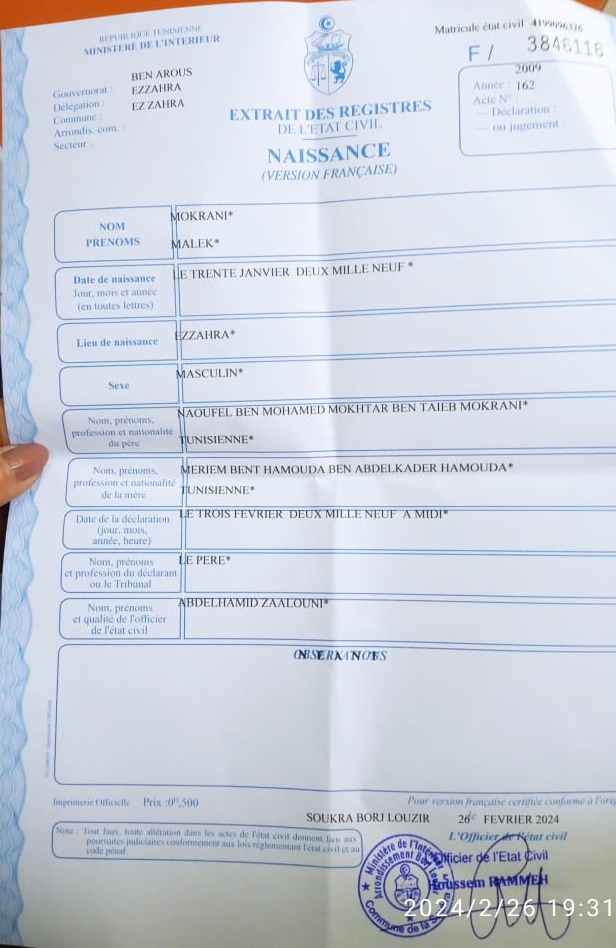 REPUBLIQUE TUNISIENNE
MINISTERE DE L'INTERIEUR
Matricule état civil 4199096326
F / 3846116
Gouvernorat : BEN AROUS
Délégation : EZZAHRA
Commune : EZ ZAHRA
Arrondis. com. :
Secteur :
2009
Année : 162
Acte N° :
— Déclaration :
— ou jugement :
EXTRAIT DES REGISTRES
DE L'ETAT CIVIL
NAISSANCE
(VERSION FRANÇAISE)
NOM MOKRANI*
PRENOMS MALEK*
Date de naissance LE TRENTE JANVIER DEUX MILLE NEUF *
Jour, mois et année
(en toutes lettres)
Lieu de naissance EZZAHRA*
Sexe MASCULIN*
Nom, prénoms, NAOUFEL BEN MOHAMED MOKHTAR BEN TAIEB MOKRANI*
profession et nationalité
du père TUNISIENNE*
Nom, prénoms, MERIEM BENT HAMOUDA BEN ABDELKADER HAMOUDA*
profession et nationalité
de la mère TUNISIENNE*
Date de la déclaration LE TROIS FEVRIER DEUX MILLE NEUF A MIDI*
(jour, mois,
année, heure)
Nom, prénoms LE PERE*
et profession du déclarant
ou le Tribunal
Nom, prénoms ABDELHAMID ZAALOUNI*
et qualité de l'officier
de l'état civil
OBSERVATIONS
N E A N T
Imprimerie Officielle Prix :0ᴰ,500
Pour version française certifiée conforme à l'orig
SOUKRA BORJ LOUZIR 26 FEVRIER 2024
L'Officier de l'état civil
Note : Tout faux, toute altération dans les actes de l'état civil donnent lieu aux
poursuites judiciaires conformement aux lois réglementant l'état civil et au
code pénal.
Officier de l'Etat Civil
Houssem RAMMEH
Ministère de l'Intérieur
Arrondissement Borj
Commune de la
2024/2/26 19:31